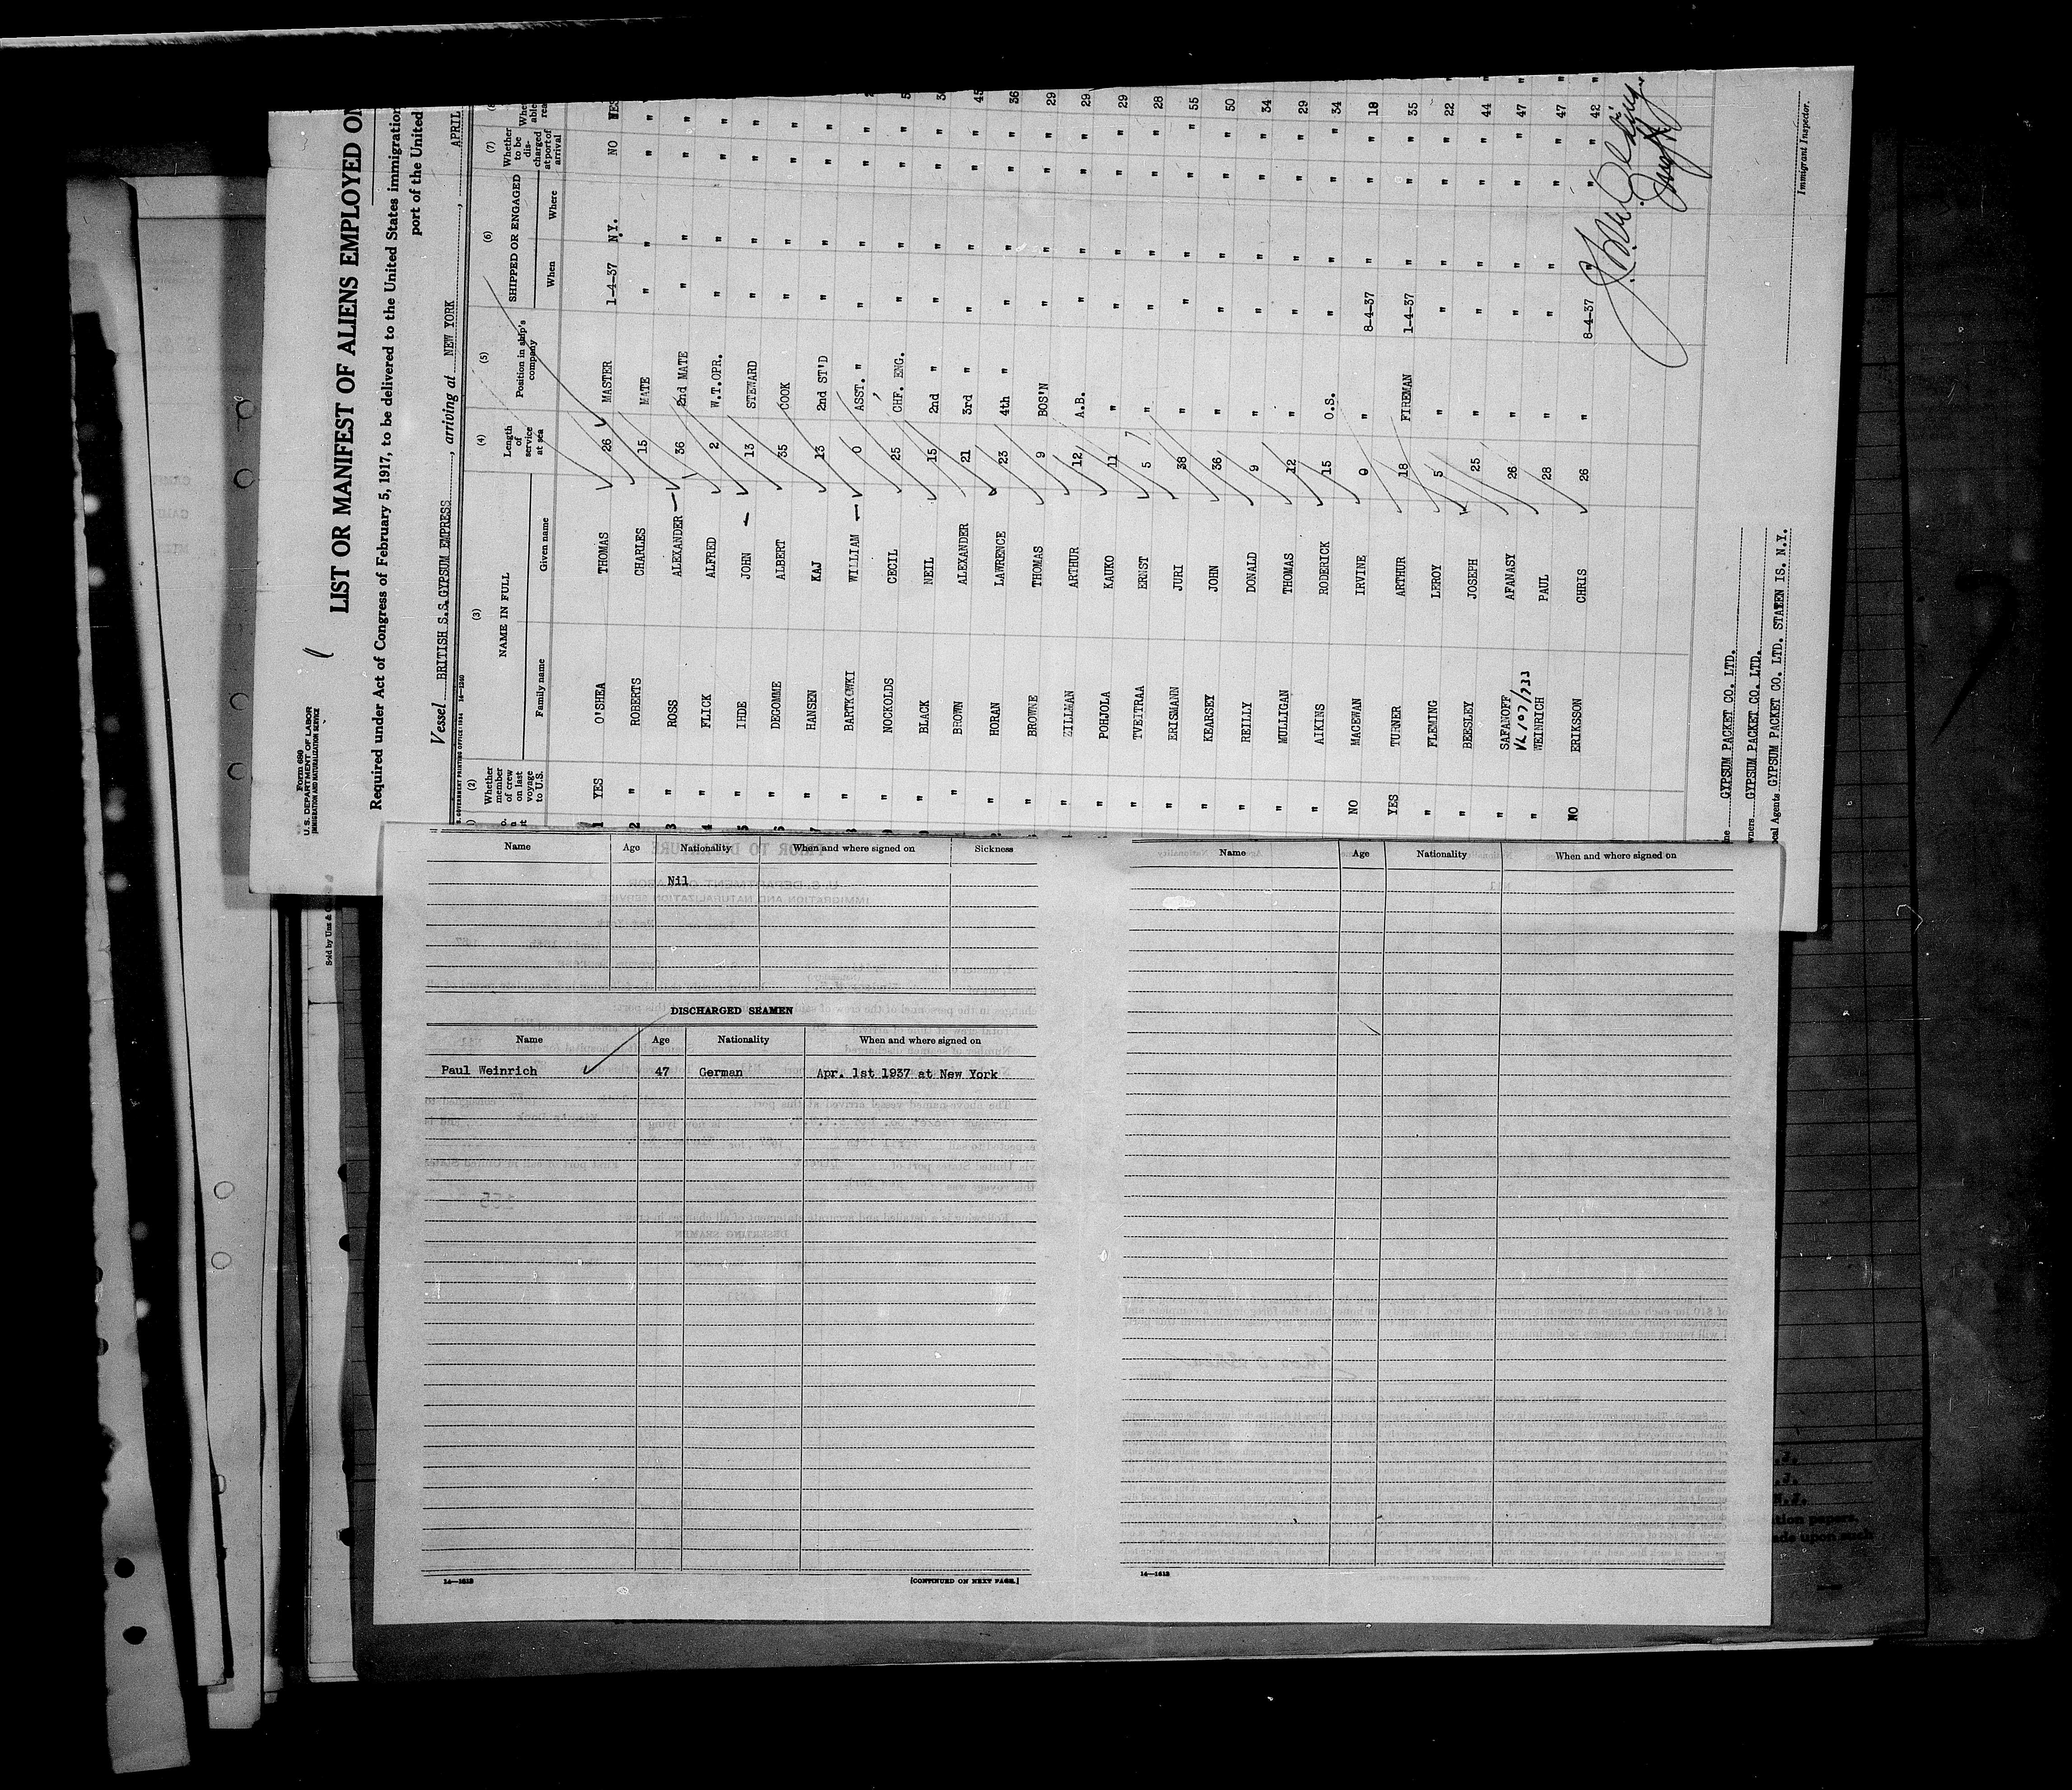 Form 680
U. S. DEPARTMENT OF LABOR
IMMIGRATION AND NATURALIZATION SERVICE
LIST OR MANIFEST OF ALIENS EMPLOYED ON
Required under Act of Congress of February 5, 1917, to be delivered to the United States immigration
port of the United
Vessel BRITISH S.S. GYPSUM EMPRESS, arriving at NEW YORK, APRIL
GOVERNMENT PRINTING OFFICE: 1934 14—1240
(2) (3) (4) (5) (6) (7)
Whether member of crew on last voyage to U.S. NAME IN FULL Length of service at sea Position in ship's company SHIPPED OR ENGAGED Whether to be discharged at port of arrival
Family name Given name When Where
1 YES O'SHEA THOMAS 26 MASTER 1-4-37 N.Y. NO YES
2 " ROBERTS CHARLES 15 MATE " " " "
3 " ROSS ALEXANDER 36 2nd MATE " " " "
4 " FLICK ALFRED 2 W.T.OPR. " " " "
5 " IHDE JOHN 13 STEWARD " " " "
6 " DEGOMME ALBERT 35 COOK " " " "
7 " HANSEN KAJ 13 2nd ST'D " " " "
8 " BARTKOWKI WILLIAM 0 ASST. " " " " "
" NOCKOLDS CECIL 25 CHF. ENG. " " " "
" BLACK NEIL 15 2nd " " " " "
" BROWN ALEXANDER 21 3rd " " " " " 45
" HORAN LAWRENCE 23 4th " " " " " 36
" BROWNE THOMAS 9 BOS'N " " " " 29
" ZILLMAN ARTHUR 12 A.B. " " " " 29
" POHJOLA KAUKO 11 " " " " " 29
" TVEITRAA ERNST 5 " " " " " 28
" ERISMANN JURI 38 " " " " " 55
" KEARSEY JOHN 36 " " " " " 50
" REILLY DONALD 9 " " " " " 34
" MULLIGAN THOMAS 12 " " " " " 29
" AIKINS RODERICK 15 O.S. " " " " 34
NO MACEWAN IRVINE 0 " 8-4-37 " " " 18
YES TURNER ARTHUR 18 FIREMAN 1-4-37 " " " 35
" FLEMING LEROY 5 " " " " " 22
" BEESLEY JOSEPH 25 " " " " " 44
" SAFANOFF AFANASY 26 " " " " " 47
" WEINRICH PAUL 28 " " " " " 47
NO ERIKSSON CHRIS 26 " 8-4-37 " " " 42
GYPSUM PACKET CO. LTD.
GYPSUM PACKET CO. LTD.
Local Agents GYPSUM PACKET CO. LTD. STATEN IS. N.Y.
Immigrant Inspector.
Name Age Nationality When and where signed on Sickness
Nil
DISCHARGED SEAMEN
Name Age Nationality When and where signed on
Paul Weinrich 47 German Apr. 1st 1937 at New York
14—1612 [CONTINUED ON NEXT PAGE.]
Name Age Nationality When and where signed on
14—1612
Sold by
tion papers.
ade upon such